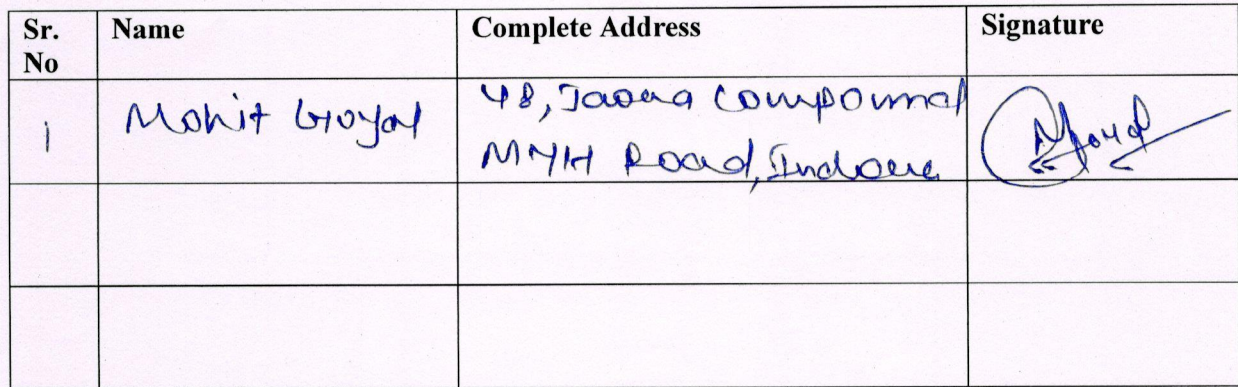 Sr. No Name Complete Address Signature
1 Mohit Goyal 48, Jaora Compound
MYH Road, Indore